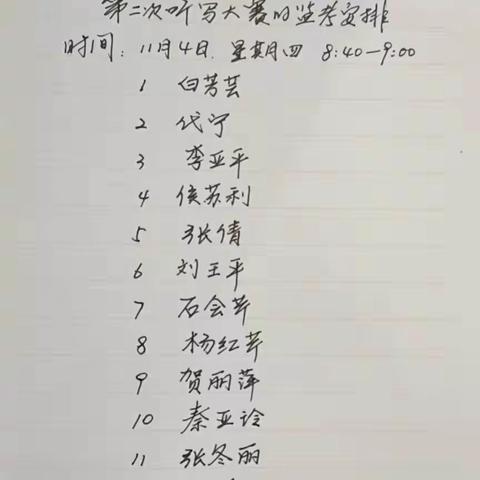 第二次听写大赛的监考安排
时间：11月4日.星期四 8:40—9:00
1 白芳芸
2 代宁
3 李亚平
4 侯苏利
5 张倩
6 刘王平
7 石会芹
8 杨红芹
9 贺丽萍
10 秦亚玲
11 张冬丽